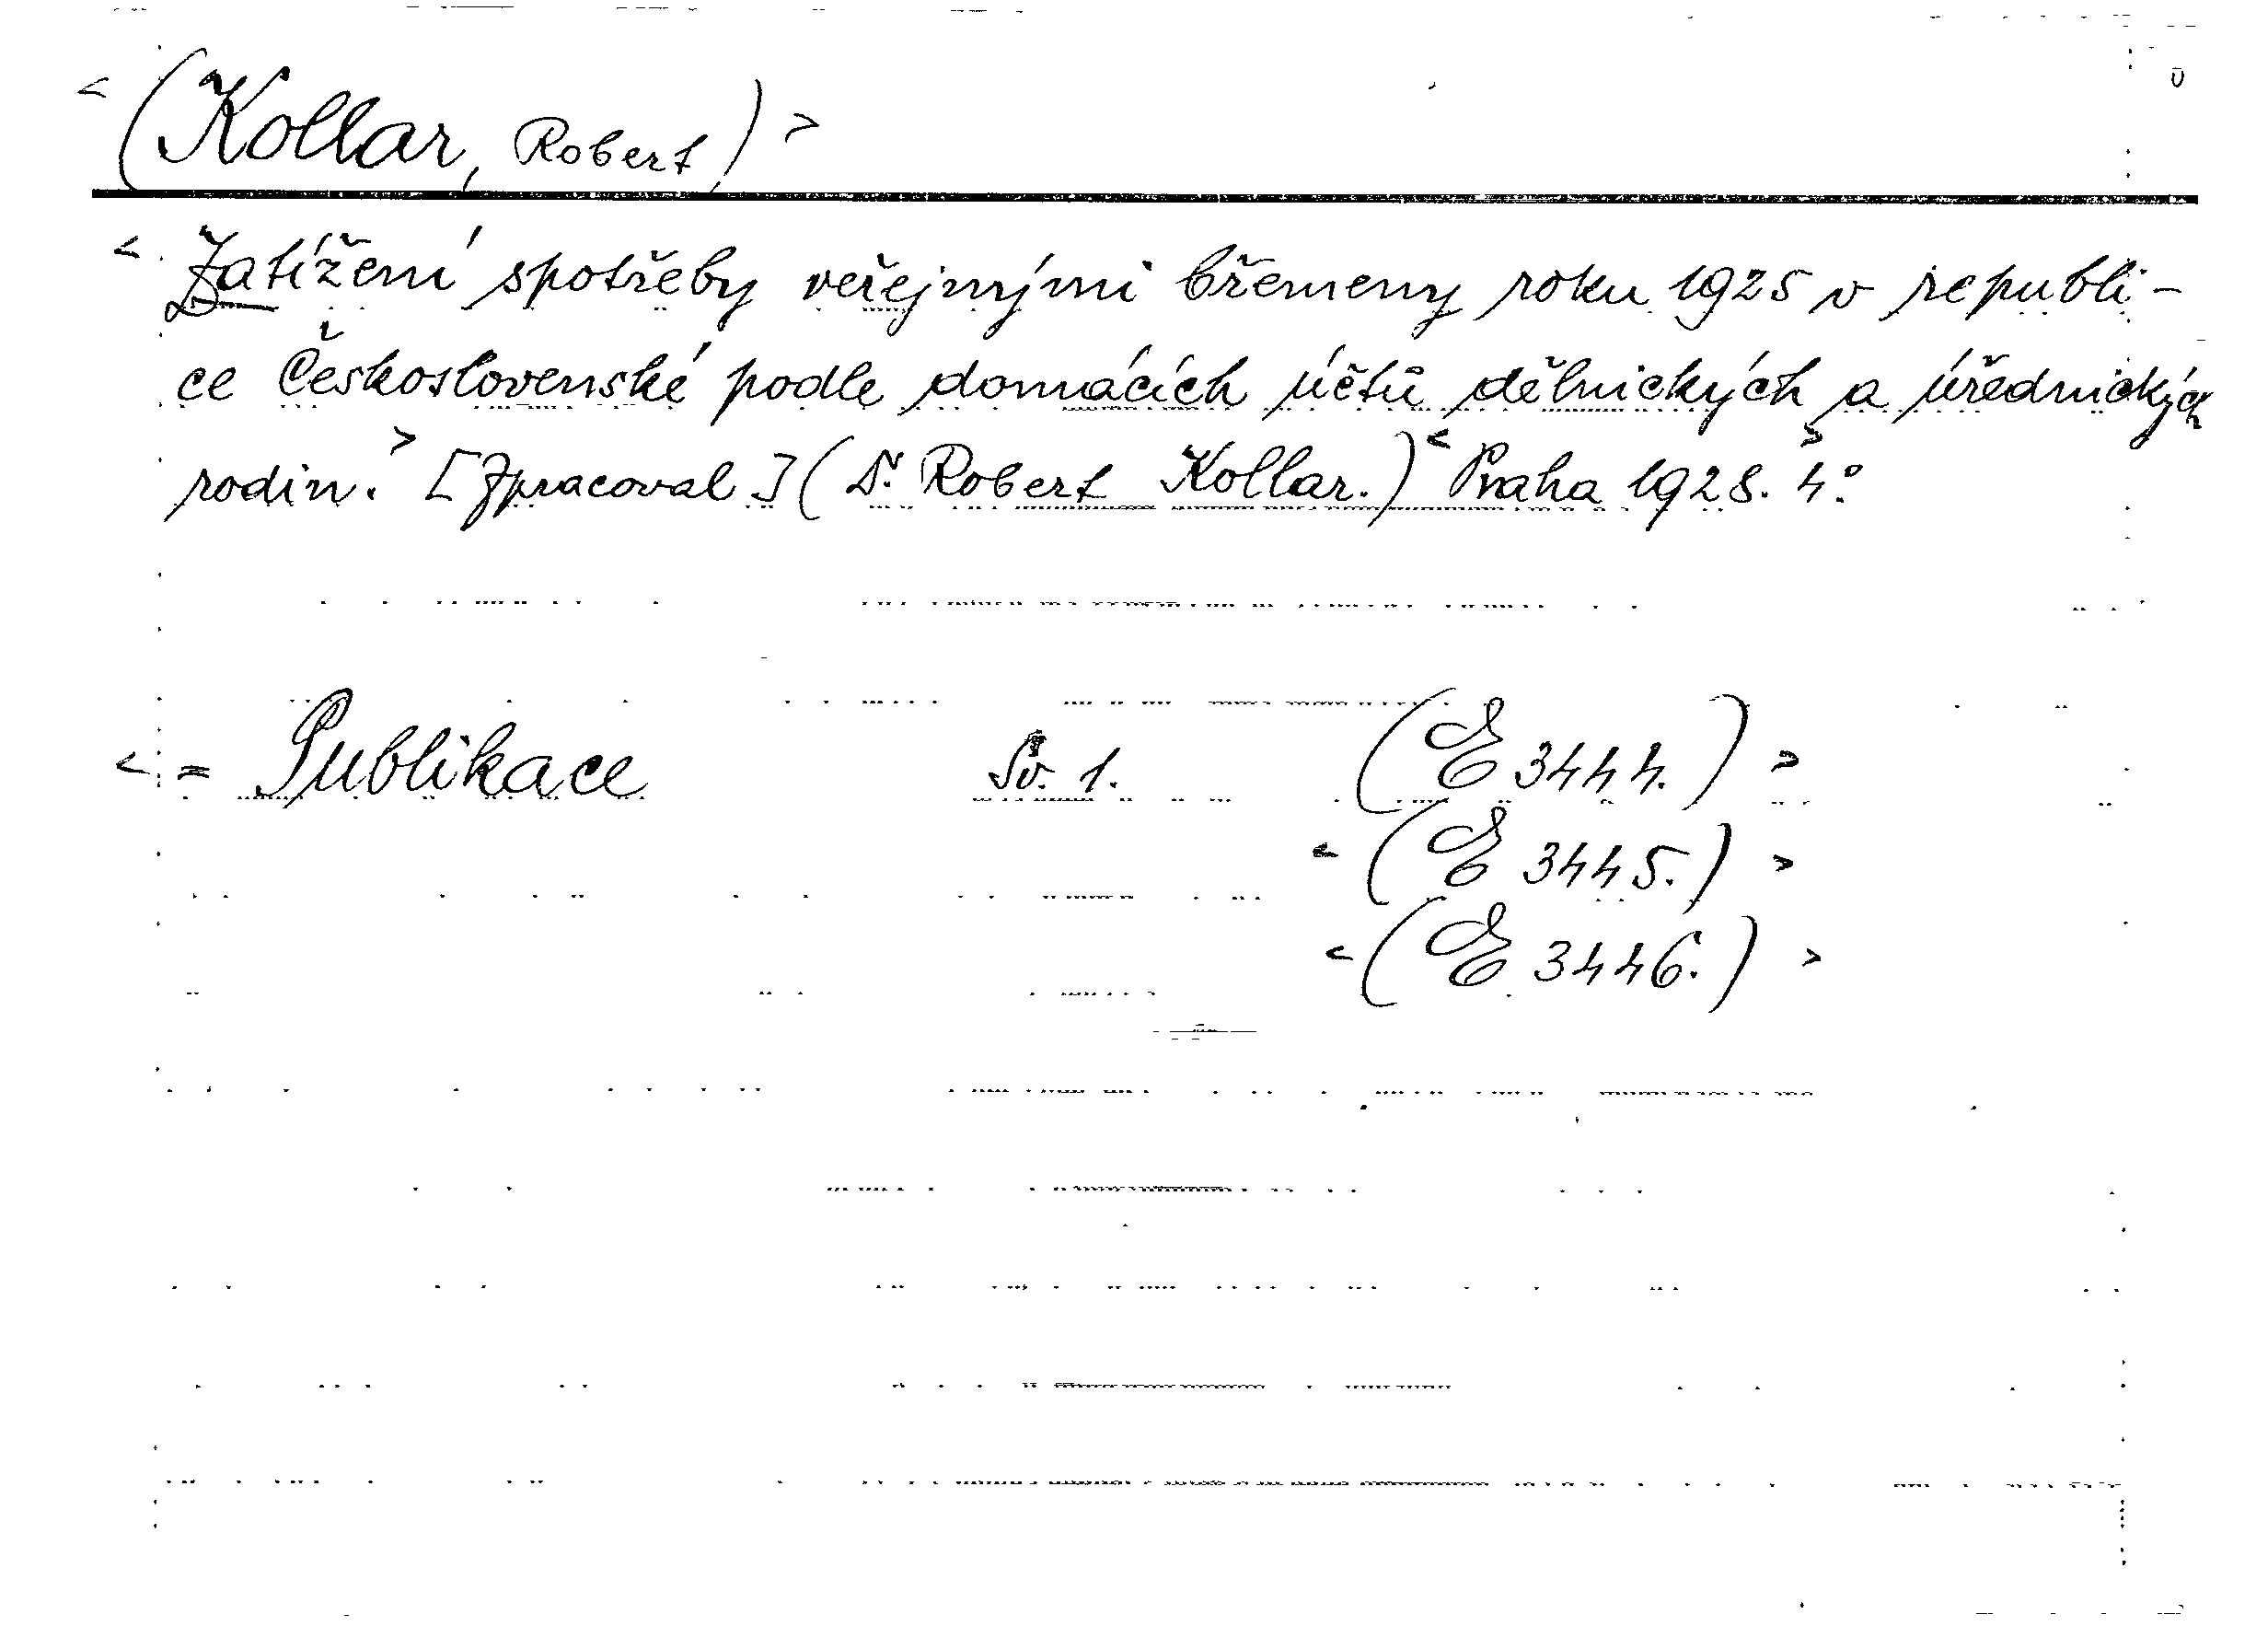 <(Kollar, Robert)>
<Zatížení spotřeby veřejnými břemeny roku 1925 v republi-
ce Československé podle domácích účtů dělnických a úřednických
rodin.> [Zpracoval] (Dr. Robert Kollar.) <Praha 1928. 4°.>
<= Publikace Sv. 1. (E 3444.)>
<(E 3445.)>
<(E 3446.)>